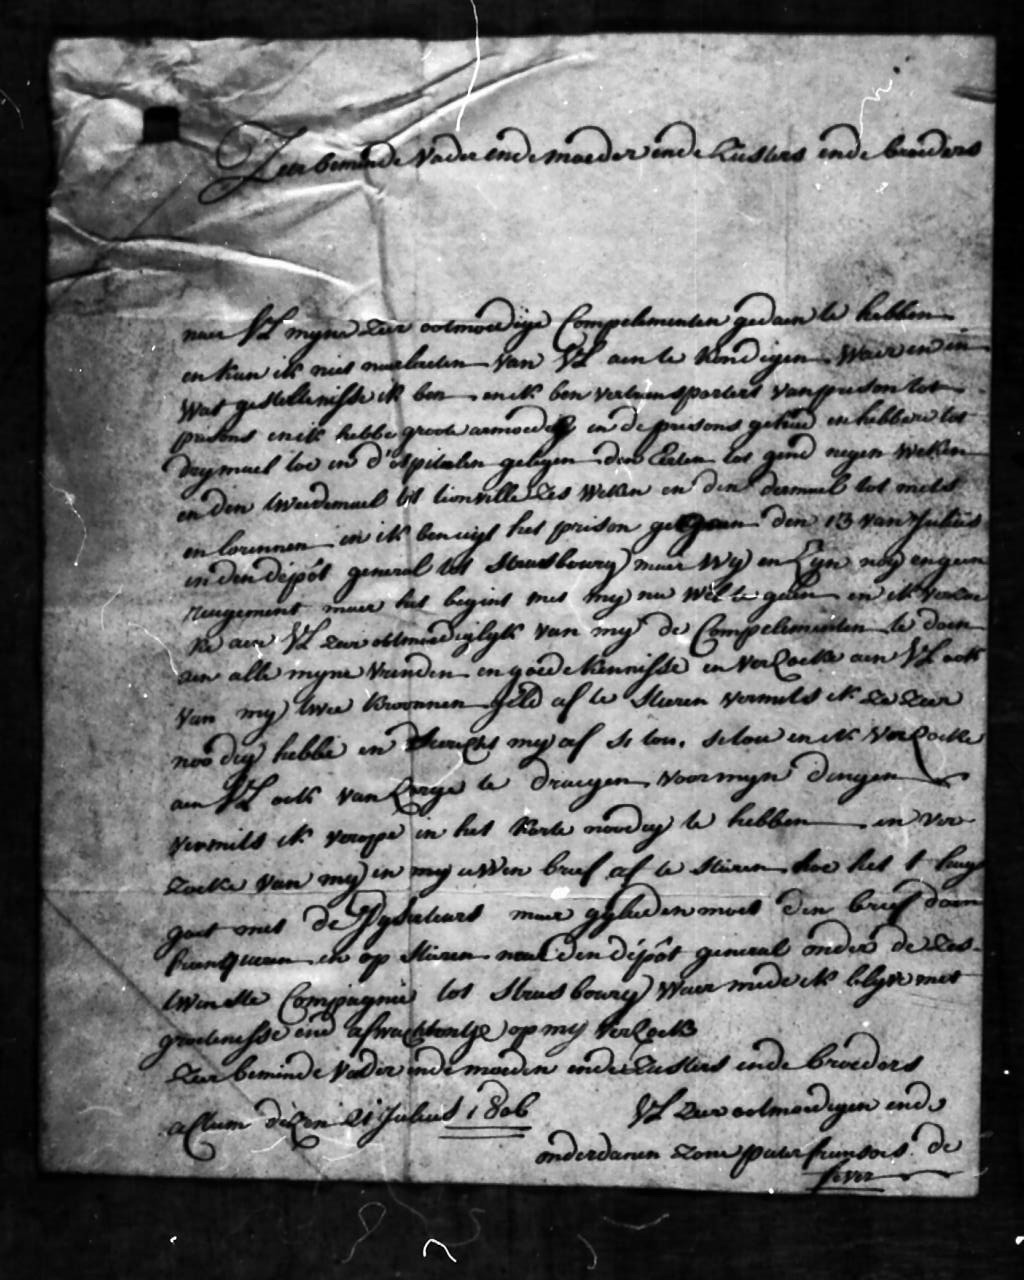 Zeer beminde vader ende moeder ende Zusters ende broeders
naer VL myne zeer ootmoedige Compelementen gedaen te hebben
en kan ik niet naerlaeten van VL aen te kondigen waer en in
wat gestellenisse ik ben en ik ben vertransporters van prison tot
prisons en ik hebbe groote armoede in de prisons gehad en hebbe tot
drymael toe in d'ospitaelen gelegen den Eersten tot gend negen weken
en den tweedemael tot tionville zes weken en den dermael tot mets
en lorennen en ik ben uyt het prison den 13 van Julius
in den dépôt general tot Strasbourg maer wy en Zyn nog en geen
regement maer het begint met my nu wel te gaen en ik verzoe
ke aen VL zeer ootmoediglyk van my de Compelementen te doen
aen alle myne vrinden en goede kennisse en verZoeke aen VL ook
van my twee kroonen geld af te stieren vermits ik ze zeer
noodig hebbe en my af en ik verZoeke
aen VL ook van Zorge te draegen voor myn dingen
vermits ik verope in het korte noodig te hebben en ver
zoeke van my in my uwen brief af te stieren hoe het t huys
gaet met de maer gylieden moet den brief doen
franqueren en op stieren naer den dépôt general onder de zes
twenste Compagnie tot Strasbourg waer mede ik blyve met
groetenisse end op my verZoek
Zeer beminde vader ende moeder ende Zusters ende broeders
actum deZen 21 Julius 1806 VL zeer ootmoedigen ende
onderdanen zone pieter fransois de